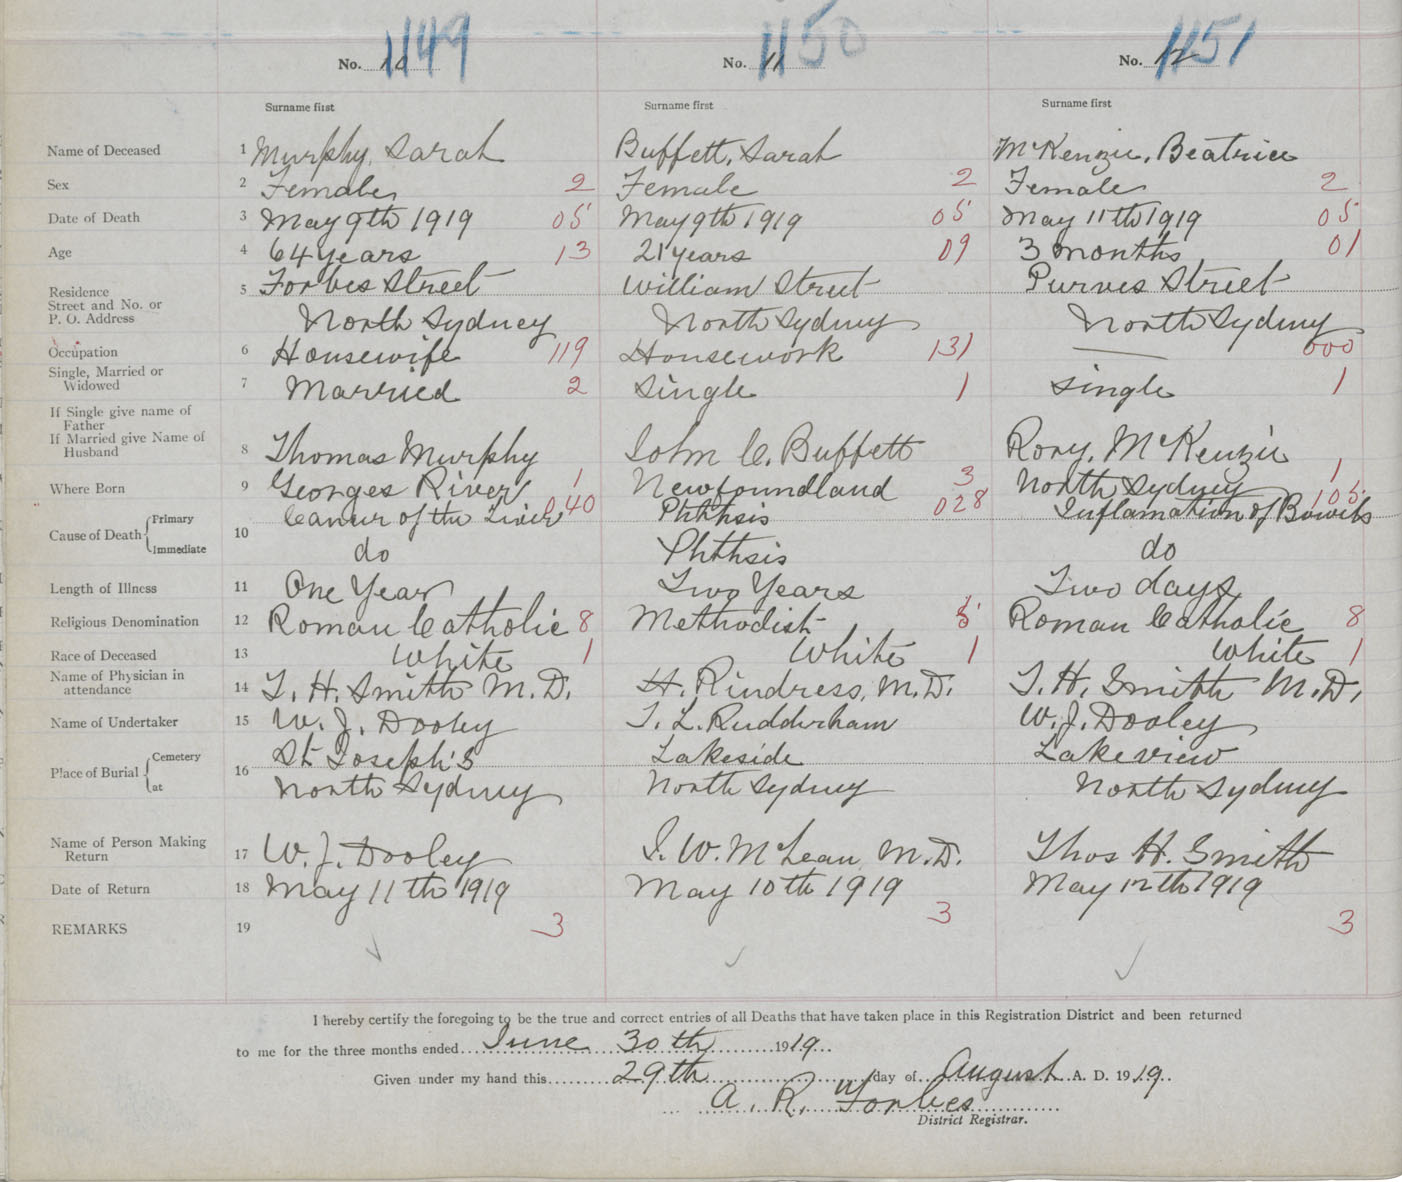 1149 1150 1151
No. 10 No. 11 No. 12
Surname first Surname first Surname first
Name of Deceased 1 Murphy, Sarah Buffett, Sarah McKenzie, Beatrice
Sex 2 Female 2 Female 2 Female 2
Date of Death 3 May 9th 1919 05 May 9th 1919 05 May 11th 1919 05
Age 4 64 years 13 21 years 09 3 months 01
Residence
Street and No. or
P. O. Address
5 Forbes Street William Street Purves Street
North Sydney North Sydney North Sydney
Occupation 6 Housewife 119 Housework 131 — 000
Single, Married or
Widowed
7 Married 2 Single 1 Single 1
If Single give name of
Father
If Married give Name of
Husband
8 Thomas Murphy John C. Buffett Rory, McKenzie
Where Born 9 Georges River 1 Newfoundland 3 North Sydney 1
Cause of Death Primary
Immediate
10 Cancer of the Liver 040 Phthsis 028 Inflamation of Bowels 105
do Phthsis do
Length of Illness 11 One Year Two Years Two days
Religious Denomination 12 Roman Catholic 8 Methodist 5 Roman Catholic 8
Race of Deceased 13 White 1 White 1 White 1
Name of Physician in
attendance
14 T. H. Smith M.D. H. Rindress, M.D. T. H. Smith M.D.
Name of Undertaker 15 W. J. Dooley T. L. Rudderham W. J. Dooley
Place of Burial Cemetery
at
16 St Joseph's Lakeside Lakeview
North Sydney North Sydney North Sydney
Name of Person Making
Return
17 W. J. Dooley J. W. McLean, M.D. Thos H. Smith
Date of Return 18 May 11th 1919 May 10th 1919 May 12th 1919
REMARKS 19 3 3 3
I hereby certify the foregoing to be the true and correct entries of all Deaths that have taken place in this Registration District and been returned
to me for the three months ended June 30th 1919
Given under my hand this 29th day of August A. D. 1919
A. R. Forbes
District Registrar.